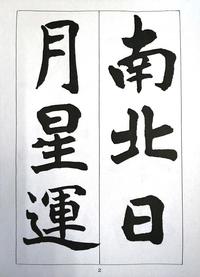 南北日
月星運
2